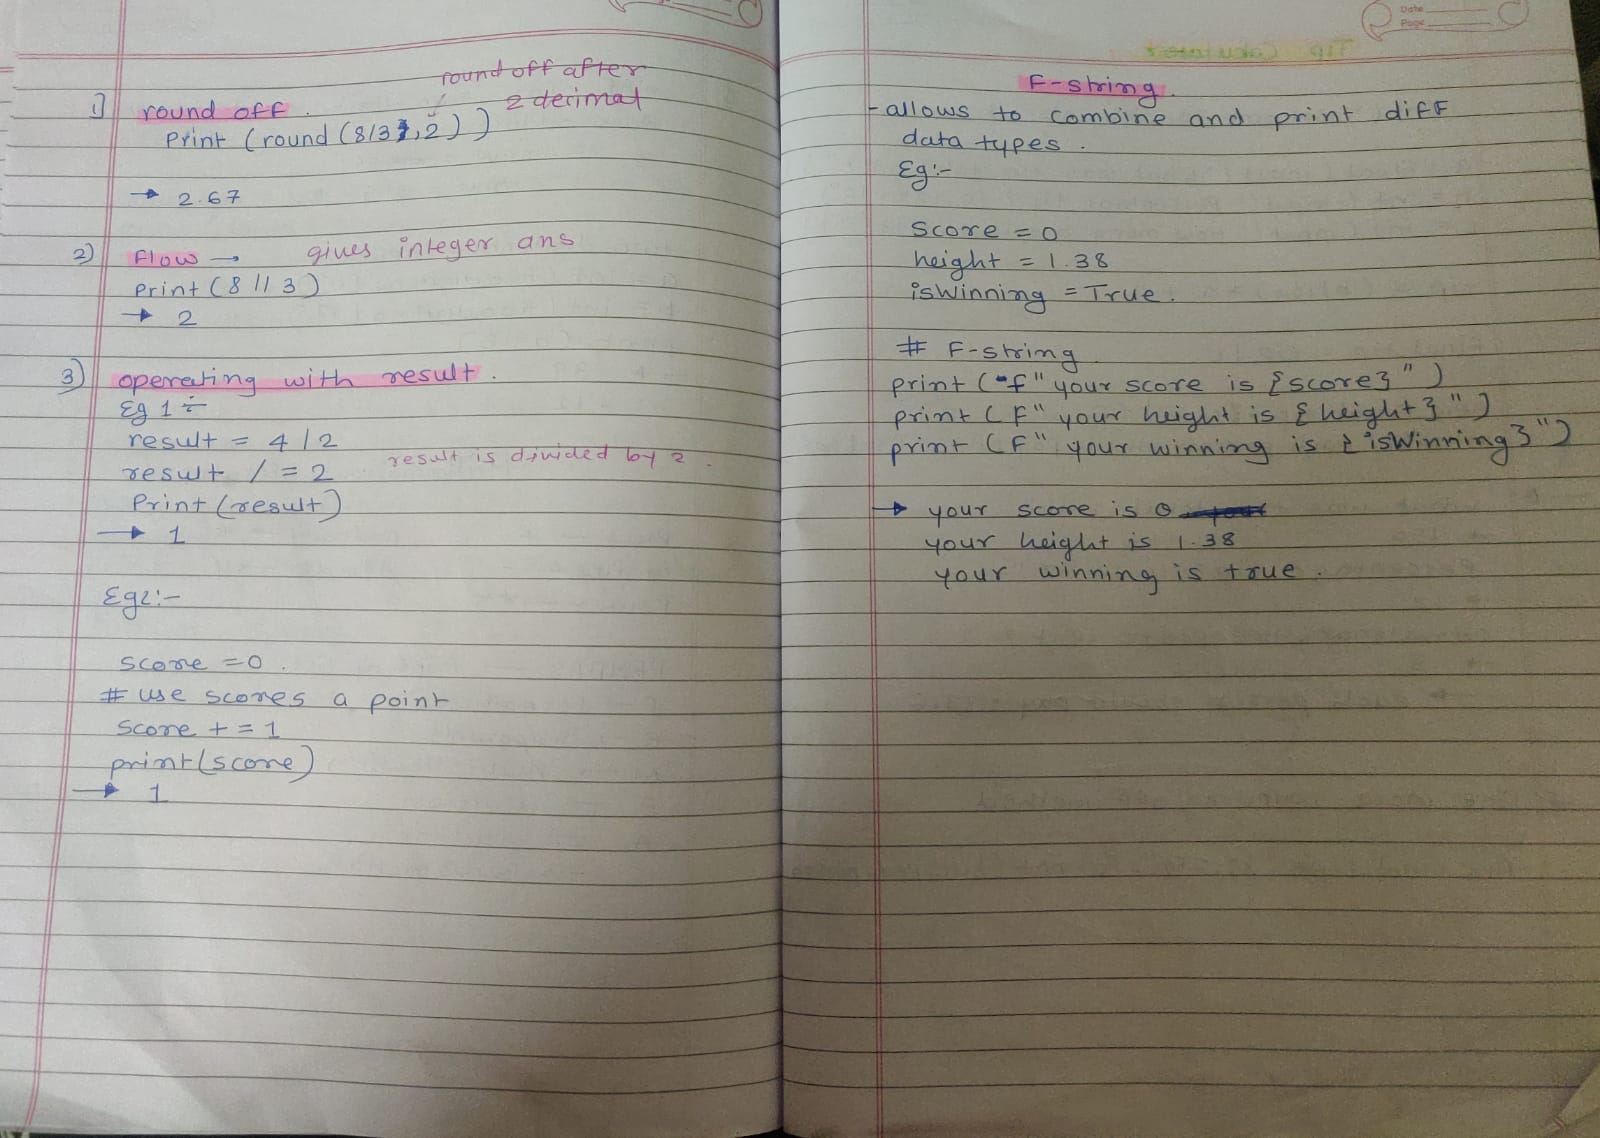 round off after
2 decimal
1) round off.
Print (round (8/3,2))
→ 2.67
2) Flow → gives integer ans
Print (8 // 3)
→ 2
3) operating with result.
Eg 1 :-
result = 4 / 2
result / = 2 result is divided by 2.
Print (result)
→ 1
Eg2:-
score = 0.
# use scores a point
Score + = 1
print(score)
→ 1
Date
Page
Tip Calculator
F-string.
- allows to combine and print diff
data types.
Eg:-
Score = 0
height = 1.38
isWinning = True.
# F-string
print (f" your score is {score}" )
print ( F" your height is { height } " )
print ( F" your winning is { isWinning } ")
→ your score is 0
your height is 1.38
your winning is true.